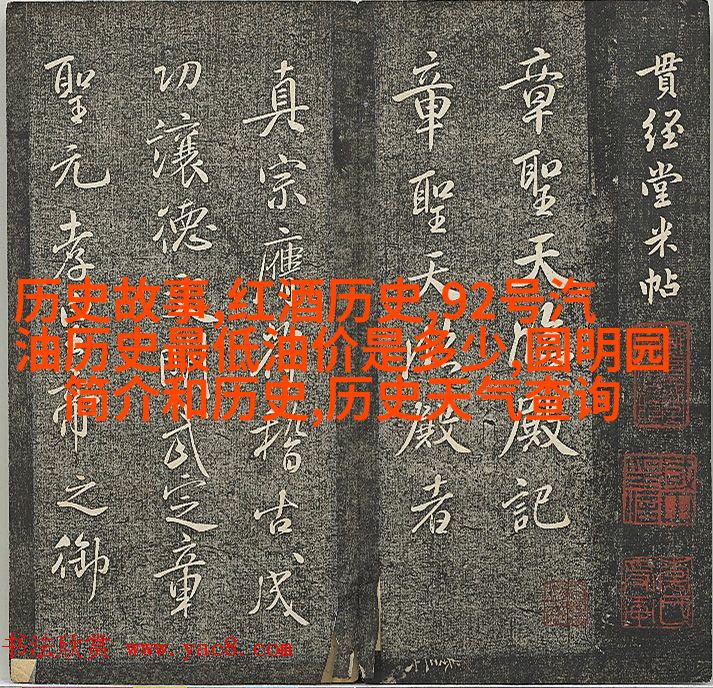 貫経堂米帖
章聖天臨殿記
章聖天臨殿者
真宗應稽古成
功讓德明武定章
聖元孝皇帝之御
历史故事,红酒历史,92号汽
油历史最低油价是多少,圆明园
简介和历史,历史天气查询
书法欣赏 www.yac8.com